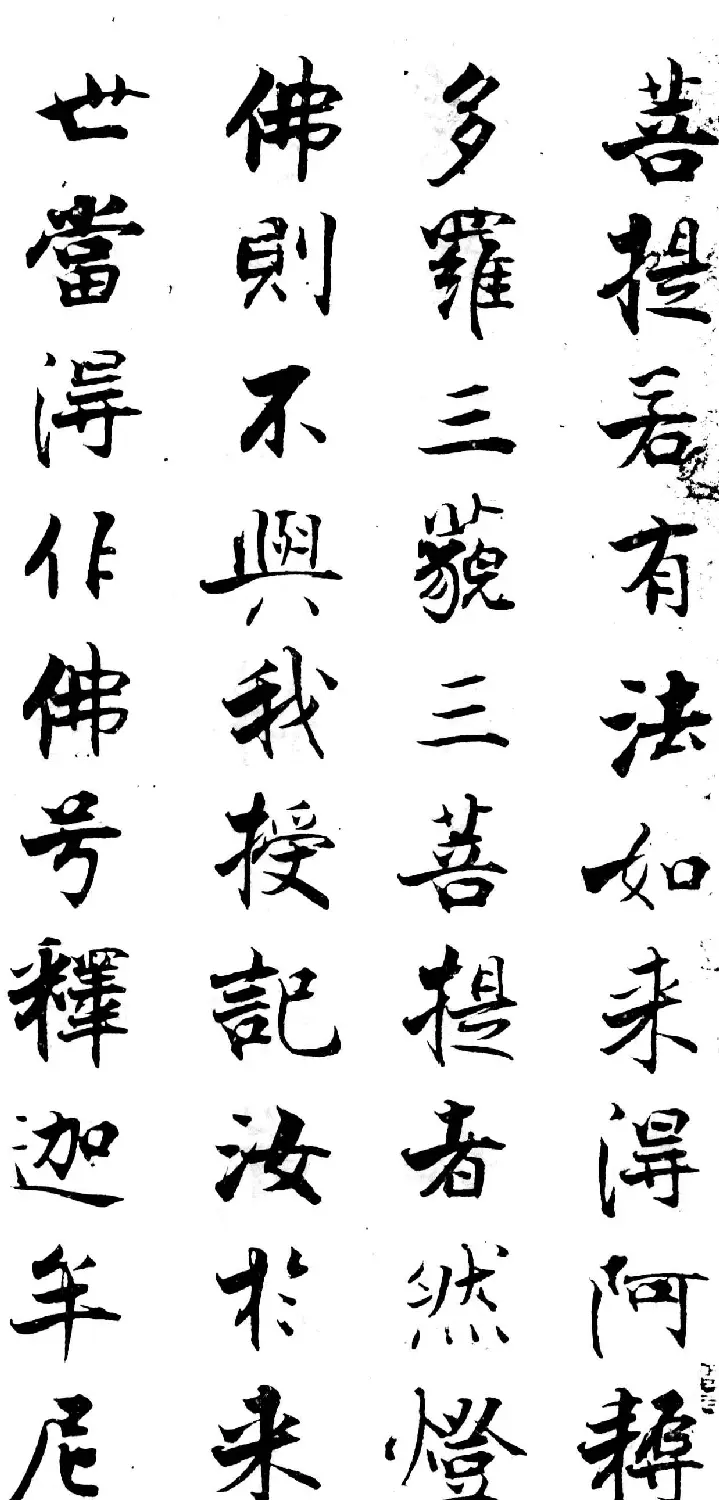 菩提若有法如来淂阿耨
多羅三藐三菩提者然燈
佛則不與我授記汝於来
世當淂作佛号釋迦牟尼